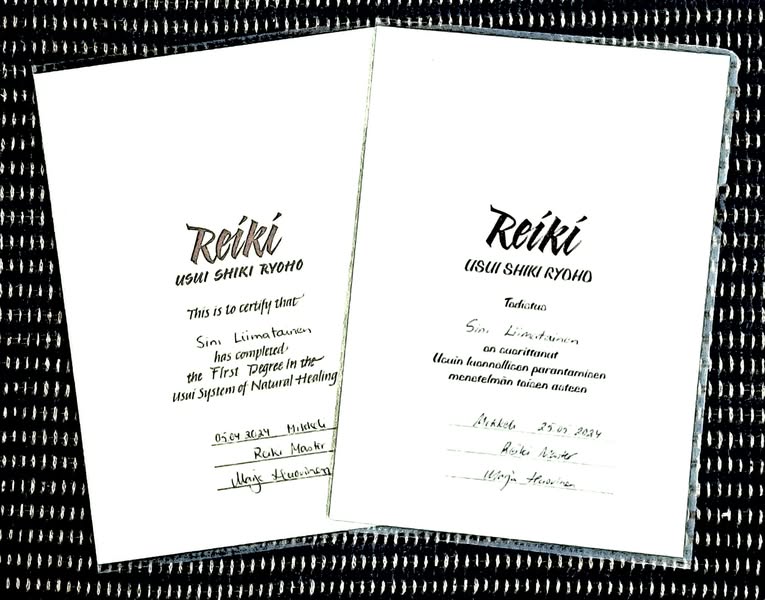 Reiki
USUI SHIKI RYOHO
This is to certify that
Sini Liimatainen
has completed
the First Degree in the
Usui System of Natural Healing
05.04 2024 Mikkeli
Reiki Master
Marja Huovinen
Reiki
USUI SHIKI RYOHO
Todistus
Sini Liimatainen
on suorittanut
Usuin luonnollisen parantamisen
menetelmän toisen asteen
Mikkeli 25.05 2024
Reiki Master
Marja Huovinen